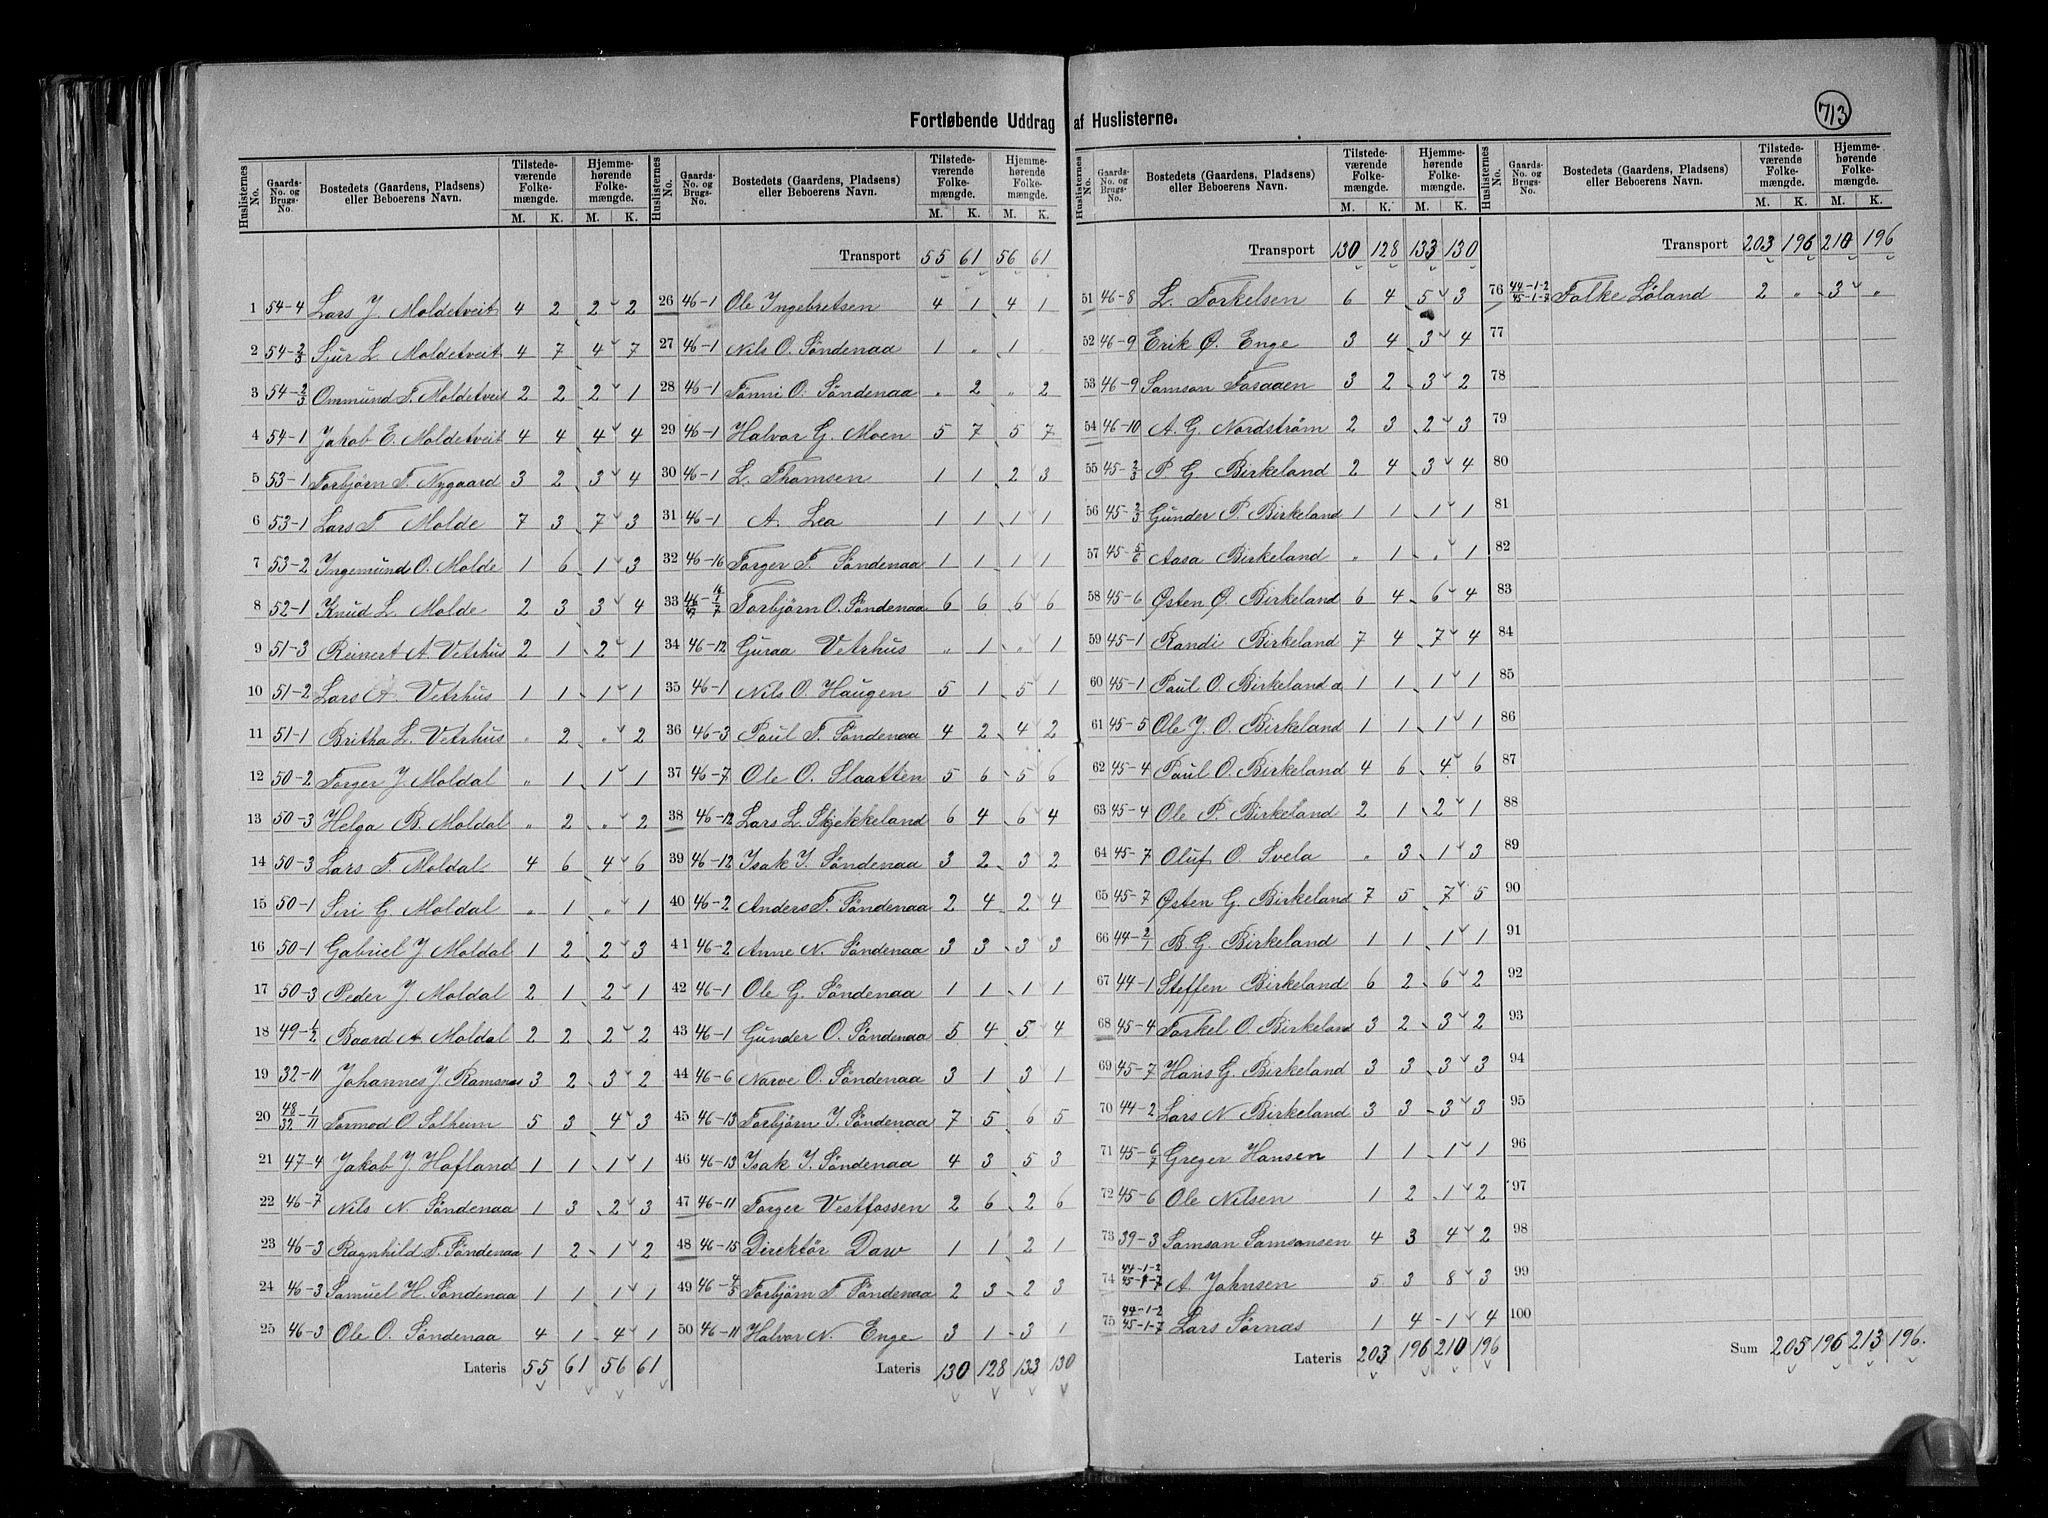 713
Fortløbende Uddrag af Huslisterne.
Huslisternes No. Gaards-No. og Brugs-No. Bostedets (Gaardens, Pladsens) eller Beboerens Navn. Tilstedeværende Folkemængde. M. K. Hjemmehørende Folkemængde. M. K.
1 54-4 Lars J. Moldetveit 4 2 2 2
2 54-2/3 Sjur L. Moldetveit 4 7 4 7
3 54-2/3 Ommund T. Moldetveit 2 2 2 1
4 54-1 Jakob E. Moldetveit 4 4 4 4
5 53-1 Torbjørn T. Nygaard 3 2 3 4
6 53-1 Lars T. Molde 7 3 7 3
7 53-2 Ingemund O. Molde 1 6 1 3
8 52-1 Knud L. Molde 2 3 3 4
9 51-3 Reinert A. Vetrhus 2 1 2 1
10 51-2 Lars A. Vetrhus 1 1 1 1
11 51-1 Britha L. Vetrhus " 2 " 2
12 50-2 Torger J. Moldal " 1 1 1
13 50-3 Helga B. Moldal " 2 " 2
14 50-3 Lars T. Moldal 4 6 4 6
15 50-1 Siri G. Moldal " 1 " 1
16 50-1 Gabriel J. Moldal 1 2 2 3
17 50-3 Peder J. Moldal 2 1 2 1
18 49-1/2 Baard A. Moldal 2 2 2 2
19 32-11 Johannes J. Ramsnæs 3 2 3 2
20 48/32-1/11 Tormod O. Solheim 5 3 4 3
21 47-4 Jakob J. Hofland 1 1 1 1
22 46-7 Nils N. Søndenaa 1 3 2 3
23 46-3 Ragnhild T. Søndenaa 1 2 1 2
24 46-3 Samuel H. Søndenaa 1 1 1 1
25 46-3 Ole O. Søndenaa 4 1 4 1
Lateris 55 61 56 61
Huslisternes No. Gaards-No. og Brugs-No. Bostedets (Gaardens, Pladsens) eller Beboerens Navn. Tilstedeværende Folkemængde. M. K. Hjemmehørende Folkemængde. M. K.
Transport 55 61 56 61
26 46-1 Ole Ingebretsen 4 1 4 1
27 46-1 Nils O. Søndenaa 1 " 1
28 46-1 Tønni O. Søndenaa " 2 " 2
29 46-1 Halvor G. Moen 5 7 5 7
30 46-1 L. Thomsen 1 1 2 3
31 46-1 A. Lea 1 1 1 1
32 46-16 Torger T. Søndenaa 1 1 1 1
33 Torbjørn O. Søndenaa 6 6 6 6
34 46-12 Guraa Vetrhus " 1 " 1
35 46-1 Nils O. Haugen 5 1 5 1
36 46-3 Paul T. Søndenaa 4 2 4 2
37 46-7 Ole O. Slaatten 5 6 5 6
38 46-12 Lars L. Skjekkeland 6 4 6 4
39 46-12 Isak I. Søndenaa 3 2 3 2
40 46-2 Anders T. Søndenaa 2 4 2 4
41 46-2 Anne N. Søndenaa 3 3 3 3
42 46-1 Ole G. Søndenaa 1 1 1 1
43 46-1 Gunder O. Søndenaa 5 4 5 4
44 46-6 Narve O. Søndenaa 3 1 3 1
45 46-13 Torbjørn I. Søndenaa 7 5 6 5
46 46-13 Isak I. Søndenaa 4 3 5 3
47 46-11 Torger Vestfossen 2 6 2 6
48 46-15 Direktør Daw 1 1 2 1
49 46-4/5 Torbjørn T. Søndenaa 2 3 2 3
50 46-11 Halvor N. Enge 3 1 3 1
Lateris 130 128 133 130
Huslisternes No. Gaards-No. og Brugs-No. Bostedets (Gaardens, Pladsens) eller Beboerens Navn. Tilstedeværende Folkemængde. M. K. Hjemmehørende Folkemængde. M. K.
Transport 130 128 133 130
51 46-8 L. Torkelsen 6 4 5 3
52 46-9 Erik Ø. Enge 3 4 3 4
53 46-9 Samson 3 2 3 2
54 46-10 A. G. Nordstrøm 2 3 2 3
55 45-2/3 P. G. Birkeland 2 4 3 4
56 45-2/3 Gunder P. Birkeland 1 1 1 1
57 45-5/6 Aasa Birkeland " 1 " 1
58 45-6 Østen Ø. Birkeland 6 4 6 4
59 45-1 Randi Birkeland 7 4 7 4
60 45-1 Paul O. Birkeland 1 1 1 1
61 45-5 Ole J. O. Birkeland 1 1 1 1
62 45-4 Paul O. Birkeland 4 6 4 6
63 45-4 Ole P. Birkeland 2 1 2 1
64 45-7 Oluf O. Svela " 3 1 3
65 45-7 Østen G. Birkeland 7 5 7 5
66 44-2/1 B. G. Birkeland 1 1 1 1
67 44-1 Steffen Birkeland 6 2 6 2
68 45-4 Torkel O. Birkeland 3 2 3 2
69 45-7 Hans G. Birkeland 3 3 3 3
70 44-2 Lars N. Birkeland 3 3 3 3
71 45-6/7 Greger Hansen 1 1 1 1
72 45-6 Ole Nilsen 1 2 1 2
73 39-3 Samson Samsonsen 4 3 4 2
74 44-1-2 45-1-7 A. Johnsen 5 3 8 3
75 44-1-2 45-1-7 Lars Sørnæs 1 4 1 4
Lateris 203 196 210 196
Huslisternes No. Gaards-No. og Brugs-No. Bostedets (Gaardens, Pladsens) eller Beboerens Navn. Tilstedeværende Folkemængde. M. K. Hjemmehørende Folkemængde. M. K.
Transport 203 196 210 196
76 44-1-2 45-1-7 Folke Løland 2 " 3 "
77
78
79
80
81
82
83
84
85
86
87
88
89
90
91
92
93
94
95
96
97
98
99
100
Sum 205 196 213 196.